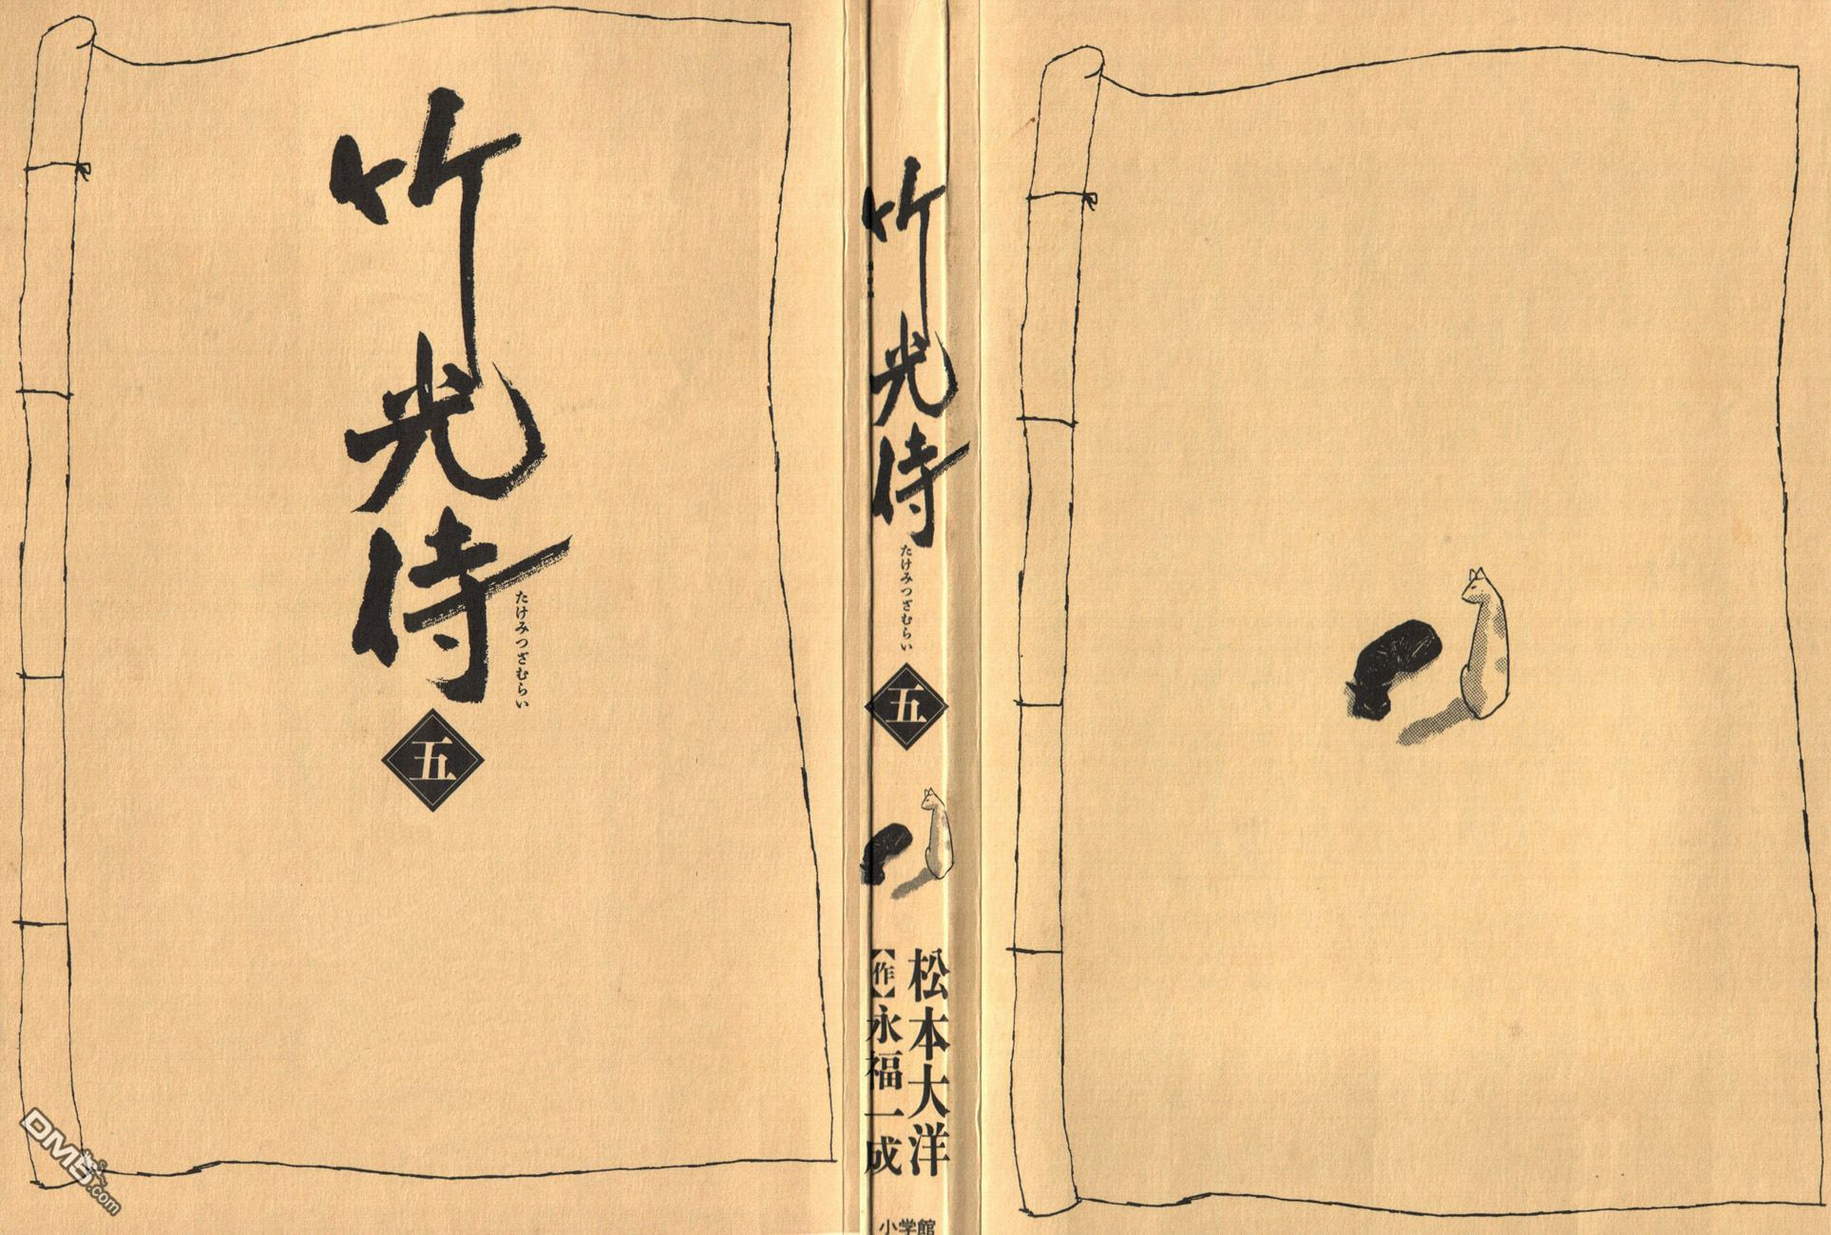 竹光侍
たけみつざむらい
五
竹光侍
たけみつざむらい
五
松本大洋
【作】永福一成
小学館
DM5.com